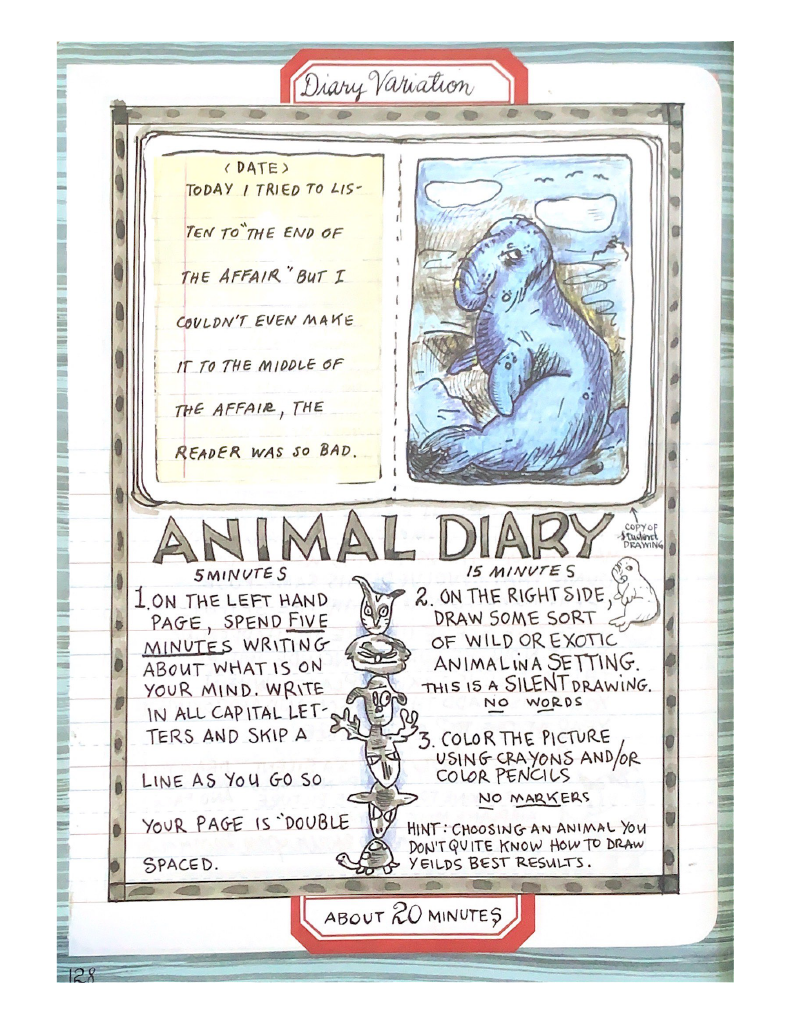 Diary Variation
<DATE>
TODAY I TRIED TO LIS-
TEN TO "THE END OF
THE AFFAIR" BUT I
COULDN'T EVEN MAKE
IT TO THE MIDDLE OF
THE AFFAIR, THE
READER WAS SO BAD.
COPY OF
student
DRAWING
ANIMAL DIARY
5 MINUTES
1. ON THE LEFT HAND
PAGE, SPEND FIVE
MINUTES WRITING
ABOUT WHAT IS ON
YOUR MIND. WRITE
IN ALL CAPITAL LET-
TERS AND SKIP A
LINE AS YOU GO SO
YOUR PAGE IS "DOUBLE
SPACED.
15 MINUTES
2. ON THE RIGHT SIDE,
DRAW SOME SORT
OF WILD OR EXOTIC
ANIMAL in A SETTING.
THIS IS A SILENT DRAWING.
NO WORDS
3. COLOR THE PICTURE,
USING CRAYONS AND/OR
COLOR PENCILS
NO MARKERS
HINT: CHOOSING AN ANIMAL YOU
DON'T QUITE KNOW HOW TO DRAW
YEILDS BEST RESULTS.
ABOUT 20 MINUTES
128